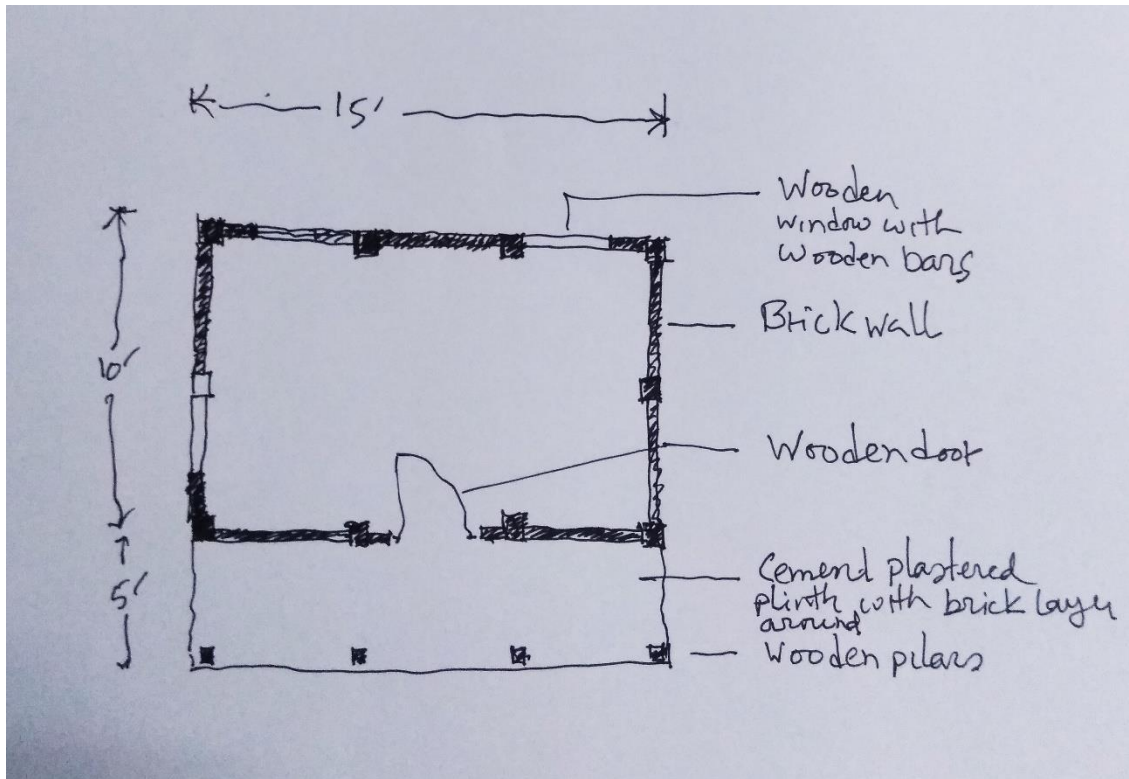 15'
Wooden
window with
wooden bars
Brick wall
10'
Wooden door
5'
Cemend plastered
plinth with brick layer
around
Wooden pilars